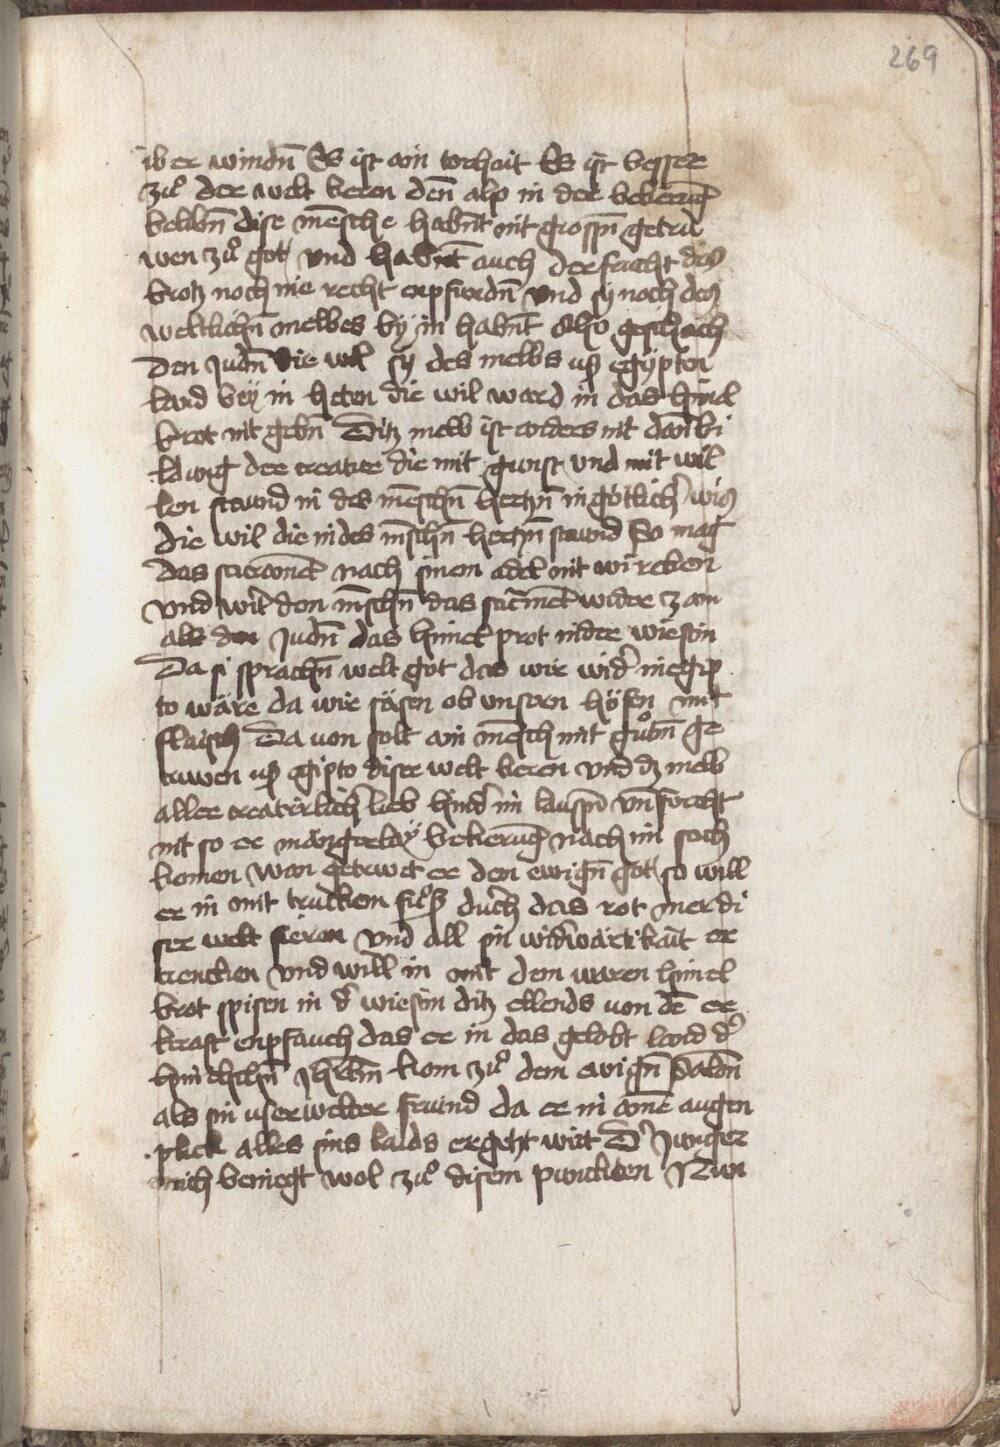 269
ib er windn̄ Es ist ain torhait Es ist besser
zuͦ der welt keren den̄ also in der bekerūg
belibn̄ dise mēsche habn̄t nit grossn̄ getru
wen zuͦ got und habn̄t auch der frucht des
brotz noch nie recht enpfundn̄ und sy noch des
weltlichn̄ melbes by in habn̄t Also geschach
den judn̄ die wil sy des melbs uß egÿpten
land bey in heten die wil ward in das himel
brot nit gebn̄ Ditz melb ist anders nit dan̄ bi
ldung der creatur die mit gunst und mit wil
len staund in des mēschn̄ hertzn̄ in götlicher wis
die wil die in des mēschn̄ hertzn̄ staund So mag
das sacramēt nach sinem adel nit wircken
und wirt den mēschn̄ das sacr̄met wider zam
als den judn̄ das himel prot in der wiestin
Da si sprachn̄ welt got das wir wider in egip
to wäre da wir säsen ob unsren häfen mit
flaisch Da von solt ain mēsch mit guͦtn̄ ge
truwen uß egipto diser welt keren und dz melb
aller creatürlicher lieb hinder im laussn̄ un̄ förcht
nit so er mängerlay bekerūg nach im sech
komen wan getruwet er dem ewign̄ got so will
er in mit trucken fuͤß durch das rot mer di
ser welt fieren und all sin widerwärtikait er
trencken und will in mit dem waren himel
brot spisen in der wiestin ditz ellends von dē er
kraft enpfauch das er in das gelobt land der
himelschn̄ jherlm̄ kom zuͦ dem ewign̄ salon̄
als sin userwelter frund da er in ainē augen
plick alles sins laids ergetzt wirt Der Junger
mich beniegt wol zuͦ disem puncten Nun